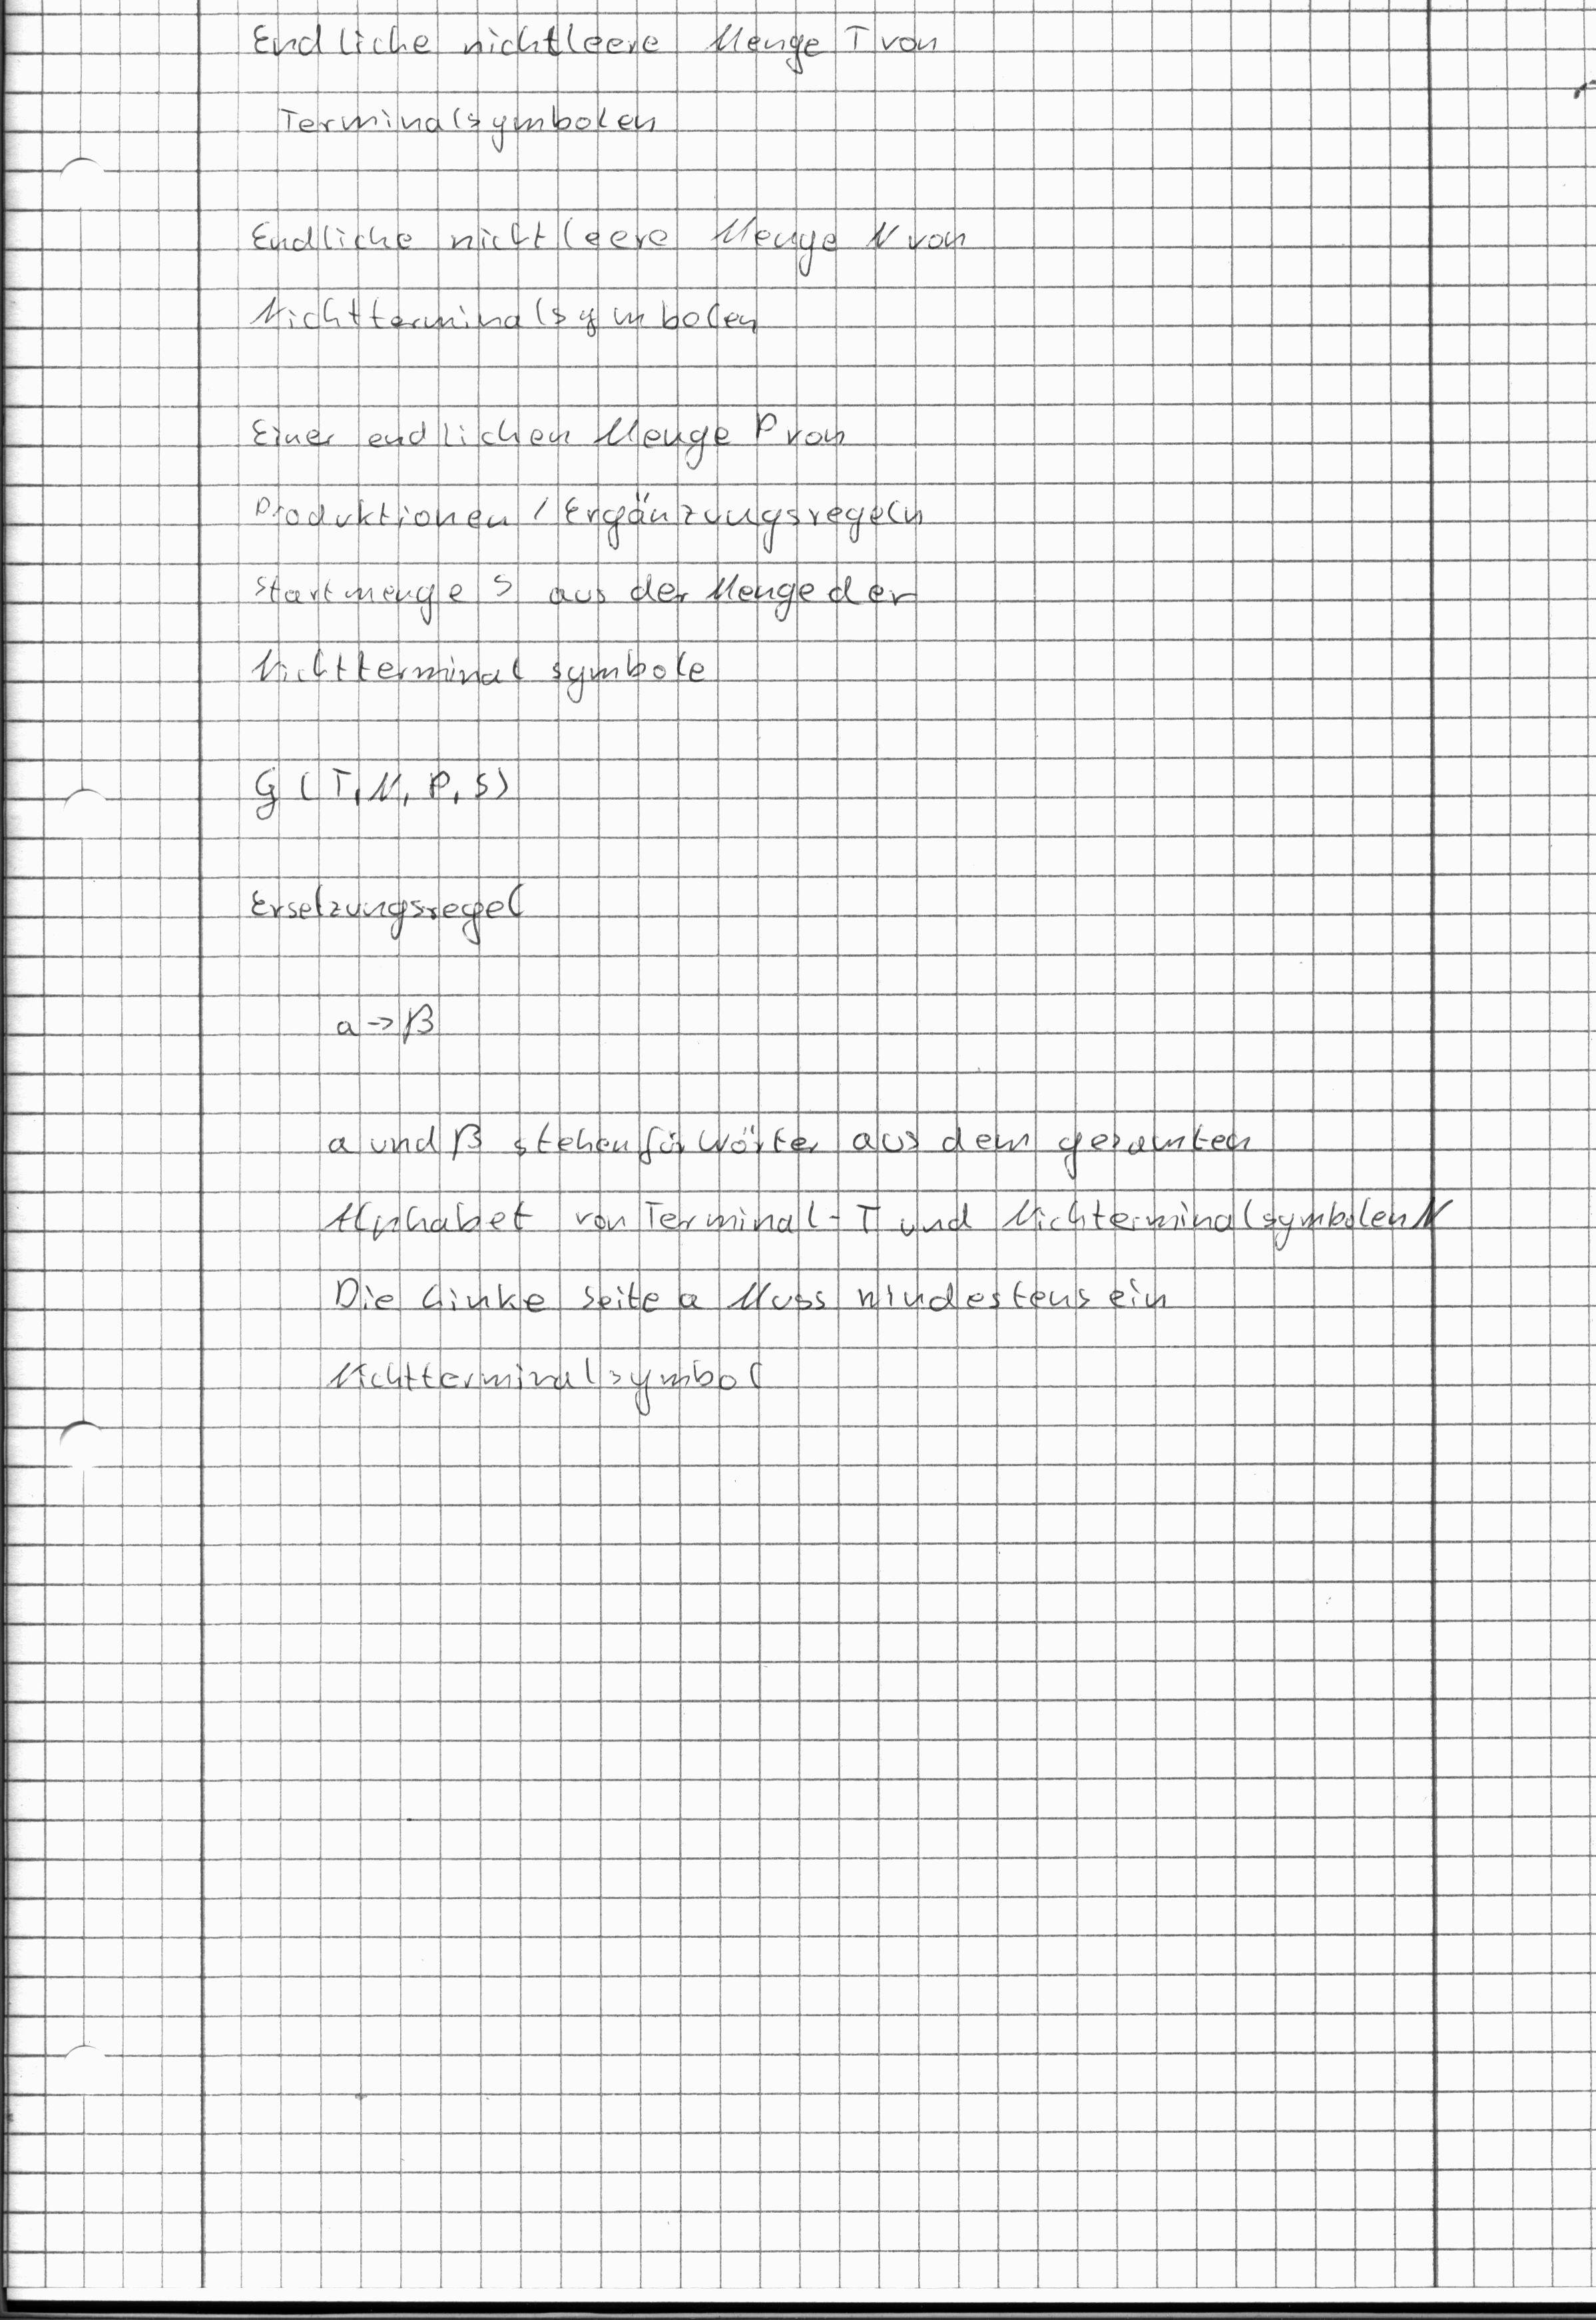 Endliche nichtleere Menge T von
Terminalsymbolen
Endliche nichtleere Menge N von
Nichtterminalsymbolen
Einer endlichen Menge P von
Produktionen / Ergänzungsregeln
Startmenge S aus der Menge der
Nichtterminal symbole
G (T, N, P, S)
Ersetzungsregel
a -> β
a und β stehen für Wörter aus dem gesamten
Alphabet von Terminal- T und Nichterminalsymbolen N
Die Linke Seite a Muss mindestens ein
Nichtterminalsymbol